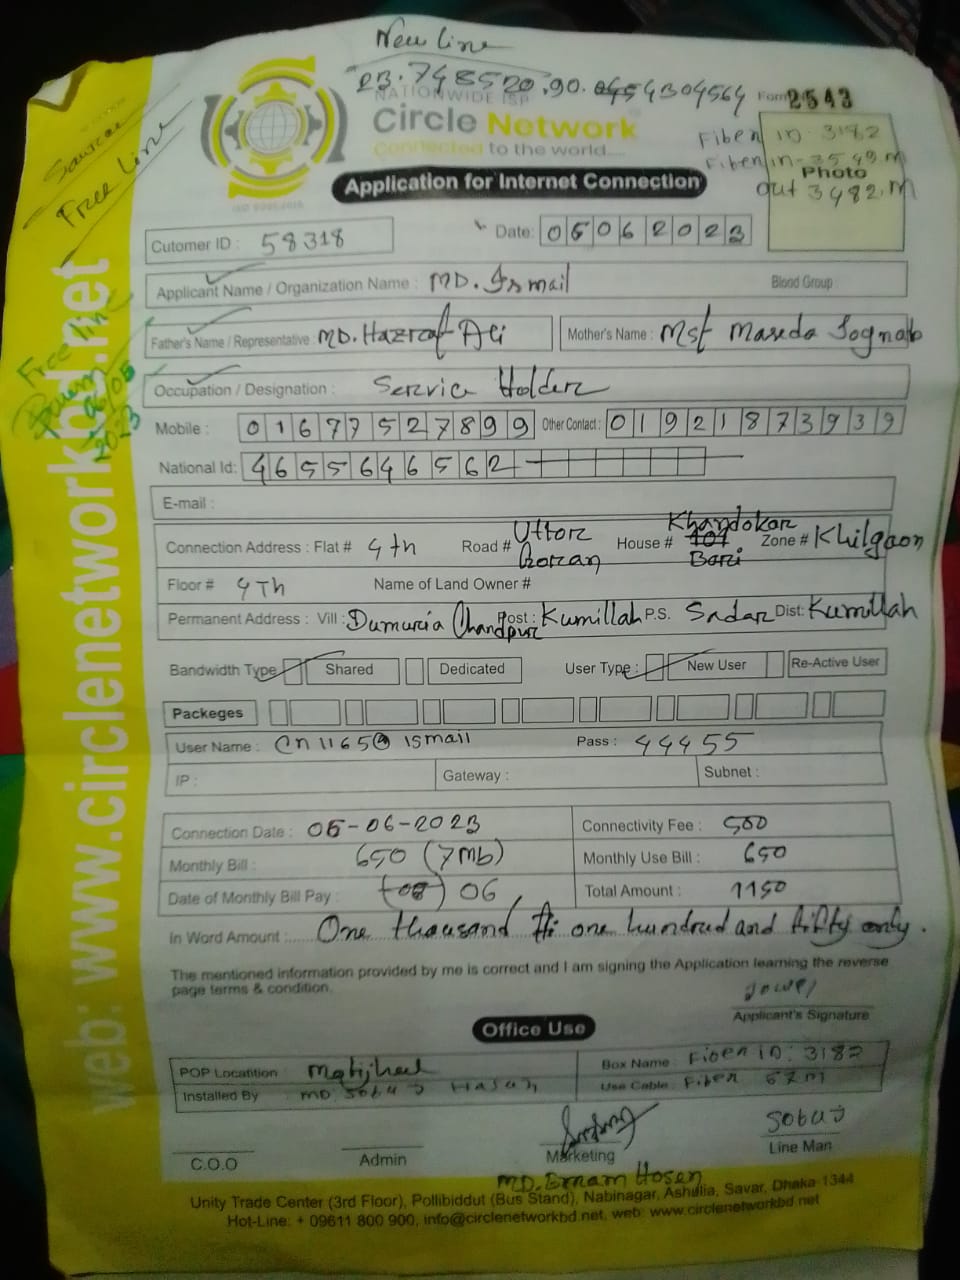 New line
23.748520.90.
NATIONWIDE ISP
Form 2543
Circle Network
Connected to the world....
Fiben ID 3182
Fiben in-3549 m
Photo
out 3482.m
Free Line
Application for Internet Connection
ISO 9001:2015
Cutomer ID : 58318
Date: 05062023
Applicant Name / Organization Name : MD. Ismail
Blood Group
Father's Name / Representative : MD. Hazrat Ali
Mother's Name : Mst Maseda
Free line
06/05
2023
Occupation / Designation : Service Holder
Mobile : 01677527899 Other Contact : 01921873939
National Id: 4655646562
E-mail :
Connection Address : Flat # 4th Road # Uttor Goran House # Khandokar Bari. Zone # Khilgaon
Floor # 4Th Name of Land Owner #
Permanent Address : Vill : Dumuria Chandpur Post : Kumillah P.S. Sadar Dist: Kumillah
Bandwidth Type Shared Dedicated User Type : New User Re-Active User
Packeges
User Name : Cn1165@ismail Pass : 44455
IP : Gateway : Subnet :
Connection Date : 05-06-2023 Connectivity Fee : 500
Monthly Bill : 650 (7mb) Monthly Use Bill : 650
Date of Monthly Bill Pay : (08) 06 Total Amount : 1150
In Word Amount : One thousand one hundred and fifty only.
The mentioned information provided by me is correct and I am signing the Application learning the reverse
page terms & condition.
Jowel
Applicant's Signature
Office Use
POP Locatition : Motijheel Box Name : Fiben ID: 3182
Installed By MD Sobuj Hasan Use Cable : Fiben 67m
Sobuj
C.O.O Admin Marketing Line Man
MD. Emam Hosen
Unity Trade Center (3rd Floor), Pollibiddut (Bus Stand), Nabinagar, Ashulia, Savar, Dhaka-1344
Hot-Line: + 09611 800 900, info@circlenetworkbd.net, web: www.circlenetworkbd.net
web: www.circlenetworkbd.net